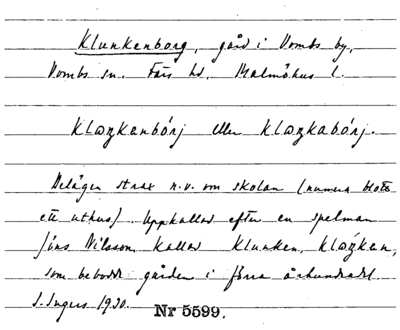 Klunkenborg, gård i Vombs by,
Vombs sn. Färs hd. Malmöhus l.
Klɷŋkanbórj eller Klɷŋkabórj.
Belägen strax n.v. om skolan (numera blott
ett uthus). Uppkallad efter en spelman
Jöns Nilsson kallad Klunken, Klɷ́ŋkan,
som bebodde gården i förra århundradet.
I. Ingers 1930. Nr 5599.